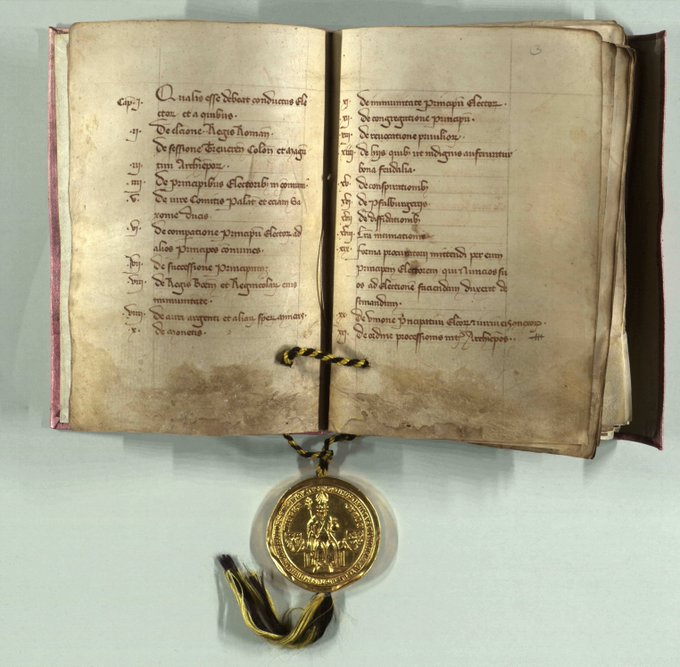 Cap. I. Qualis esse debeat conductus Elec
tor et a quibus.
.II. De elcione Regis Roman.
De sessione Treueren Colon et magu
.III. tini Archiepor.
.IIII. De principibus Electorib in comuni.
.V. De iure Comitis Palat et eciam Sa
xonie Ducis
.VI. De compacione Principu Elector ad
alios Principes comunes.
.VII. De successione Principum
.VIII. De Regis Boem et Regnicolar eius
immunitate.
.VIIII. De auri argenti et aliar sper
.X. De monetis.
3
XI. De immunitate Principu Elector.
XII. De congregatione Principu.
XIII. De reuocatione priuilior.
XIIII. De hijs quib ut indignis auferuntur
bona feudalia.
XV. De conspirationib
XVI. De Pfalburgeris
XVII. De diffidationib
XVIII. Lra intimationis
XIX. Forma procuratorii mittendi per eum
Principem Electorem qui Nuncios su
os ad Electionem faciendam duxerit de
stinandum.
XX. De Unione Principatuum Elcor et iurium
XXI. De ordine processionis Archiepos.